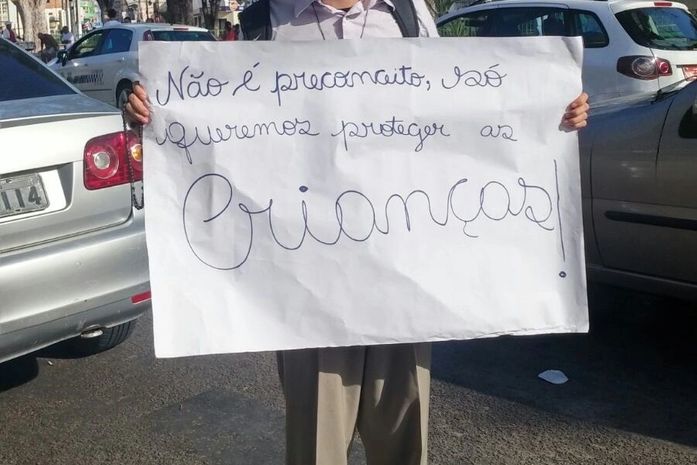 Não é preconceito, só
queremos proteger as
Crianças!
114